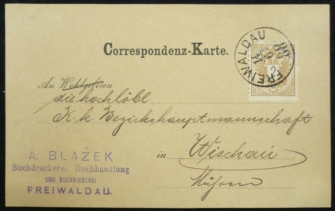 Correspondenz-Karte.
FREIWALDAU
An Wohlgeboren
die hochlöbl.
K. k. Bezirkshauptmannschaft
in Wischau
Mähren
A. BLAŽEK
Buchdruckerei, Buchhandlung
UND BUCHBINDEREI
FREIWALDAU.